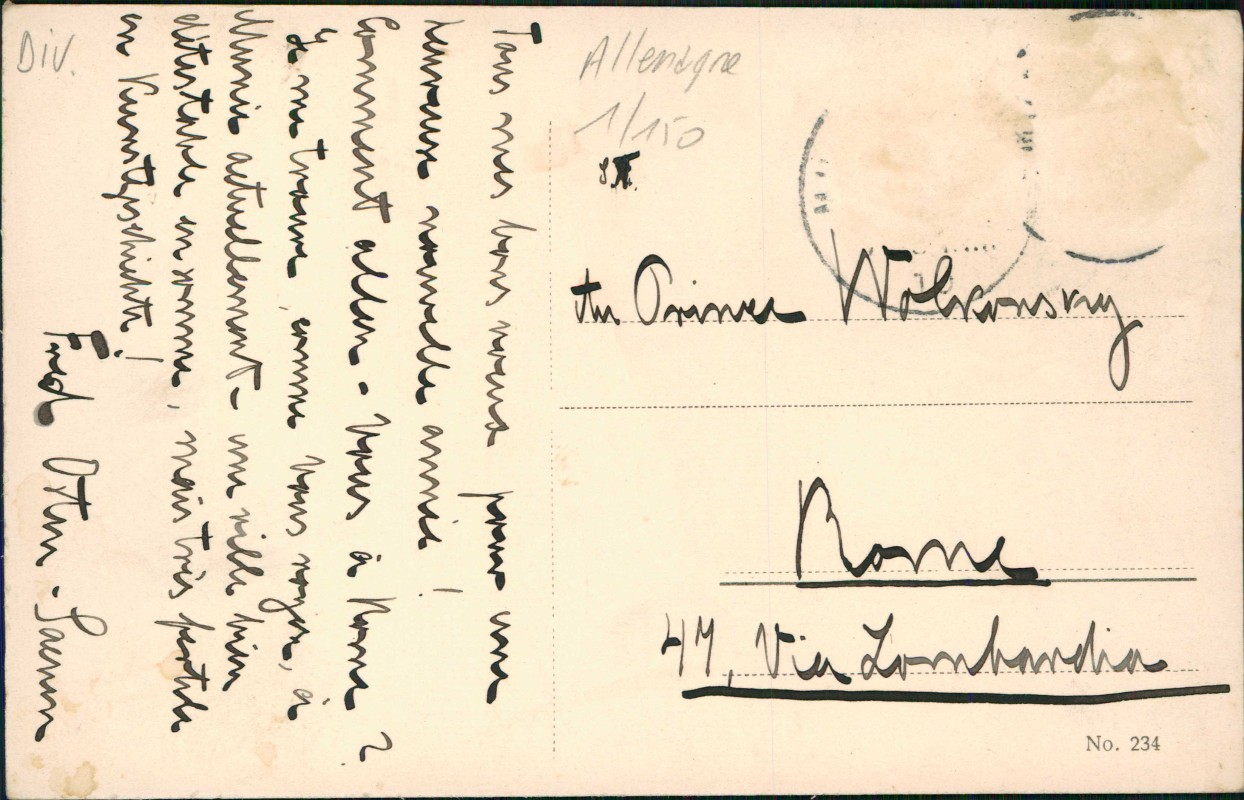 Div.
Tous mes bons voeux pour une
heureuse nouvelle année !
Comment allez-vous à Rome ?
Je me trouve, comme vous voyez, à
Munic actuellement - une ville bien
détestable en somme, mais très fertile
en Kunstgeschichte !
Fred Osten-Sacken
Allemagne
1/150
Au Prince Wolkonsky
Rome
47, Via Lombardia
No. 234